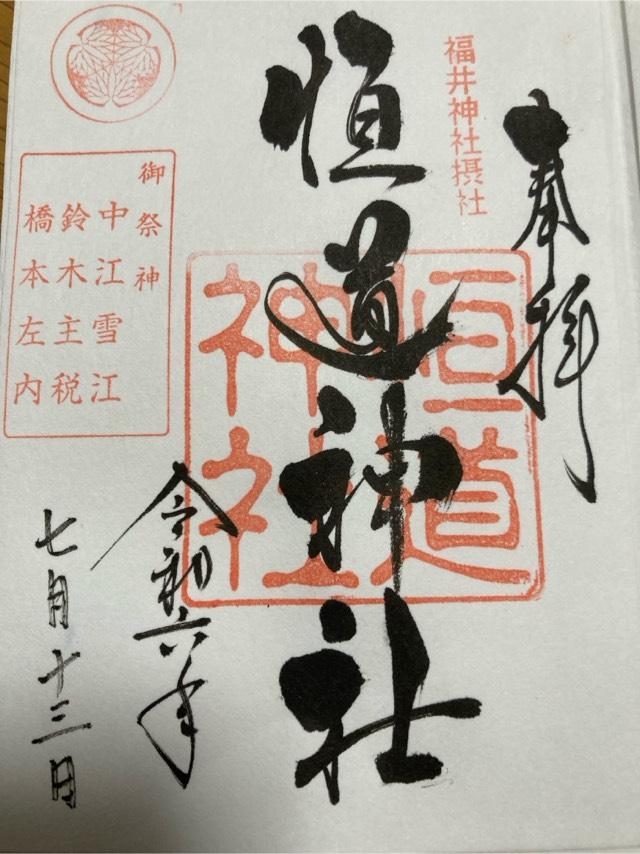 奉拝
福井神社摂社
恒道神社
恒道
神社
令和六年
七月十三日
御祭神
中江雪江
鈴木主税
橋本左内